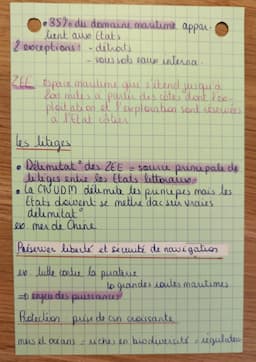 • 35% du domaine maritime appar-
tient aux Etats
2 exceptions : - détroits
- vaisseaux
ZEE Espace maritime qui s'étend jusqu'à
200 miles à partir des côtes dont l'ex-
ploitation et l'exploration sont réservées
à l'Etat côtier
Les litiges
• Délimitat° des ZEE = source principale de
litiges entre les Etats littoraux
• La CNUDM délimite les principes mais les
Etats doivent se mettre d'acc sur vraies
délimitat°
ex. mer de Chine
Préserver liberté et sécurité de navigation
ex : lutte contre la piraterie
↳ grandes routes maritimes
⇒ enjeu des puissances
Protection prise de csn croissante
mers et océans = riches en biodiversité + régulateur